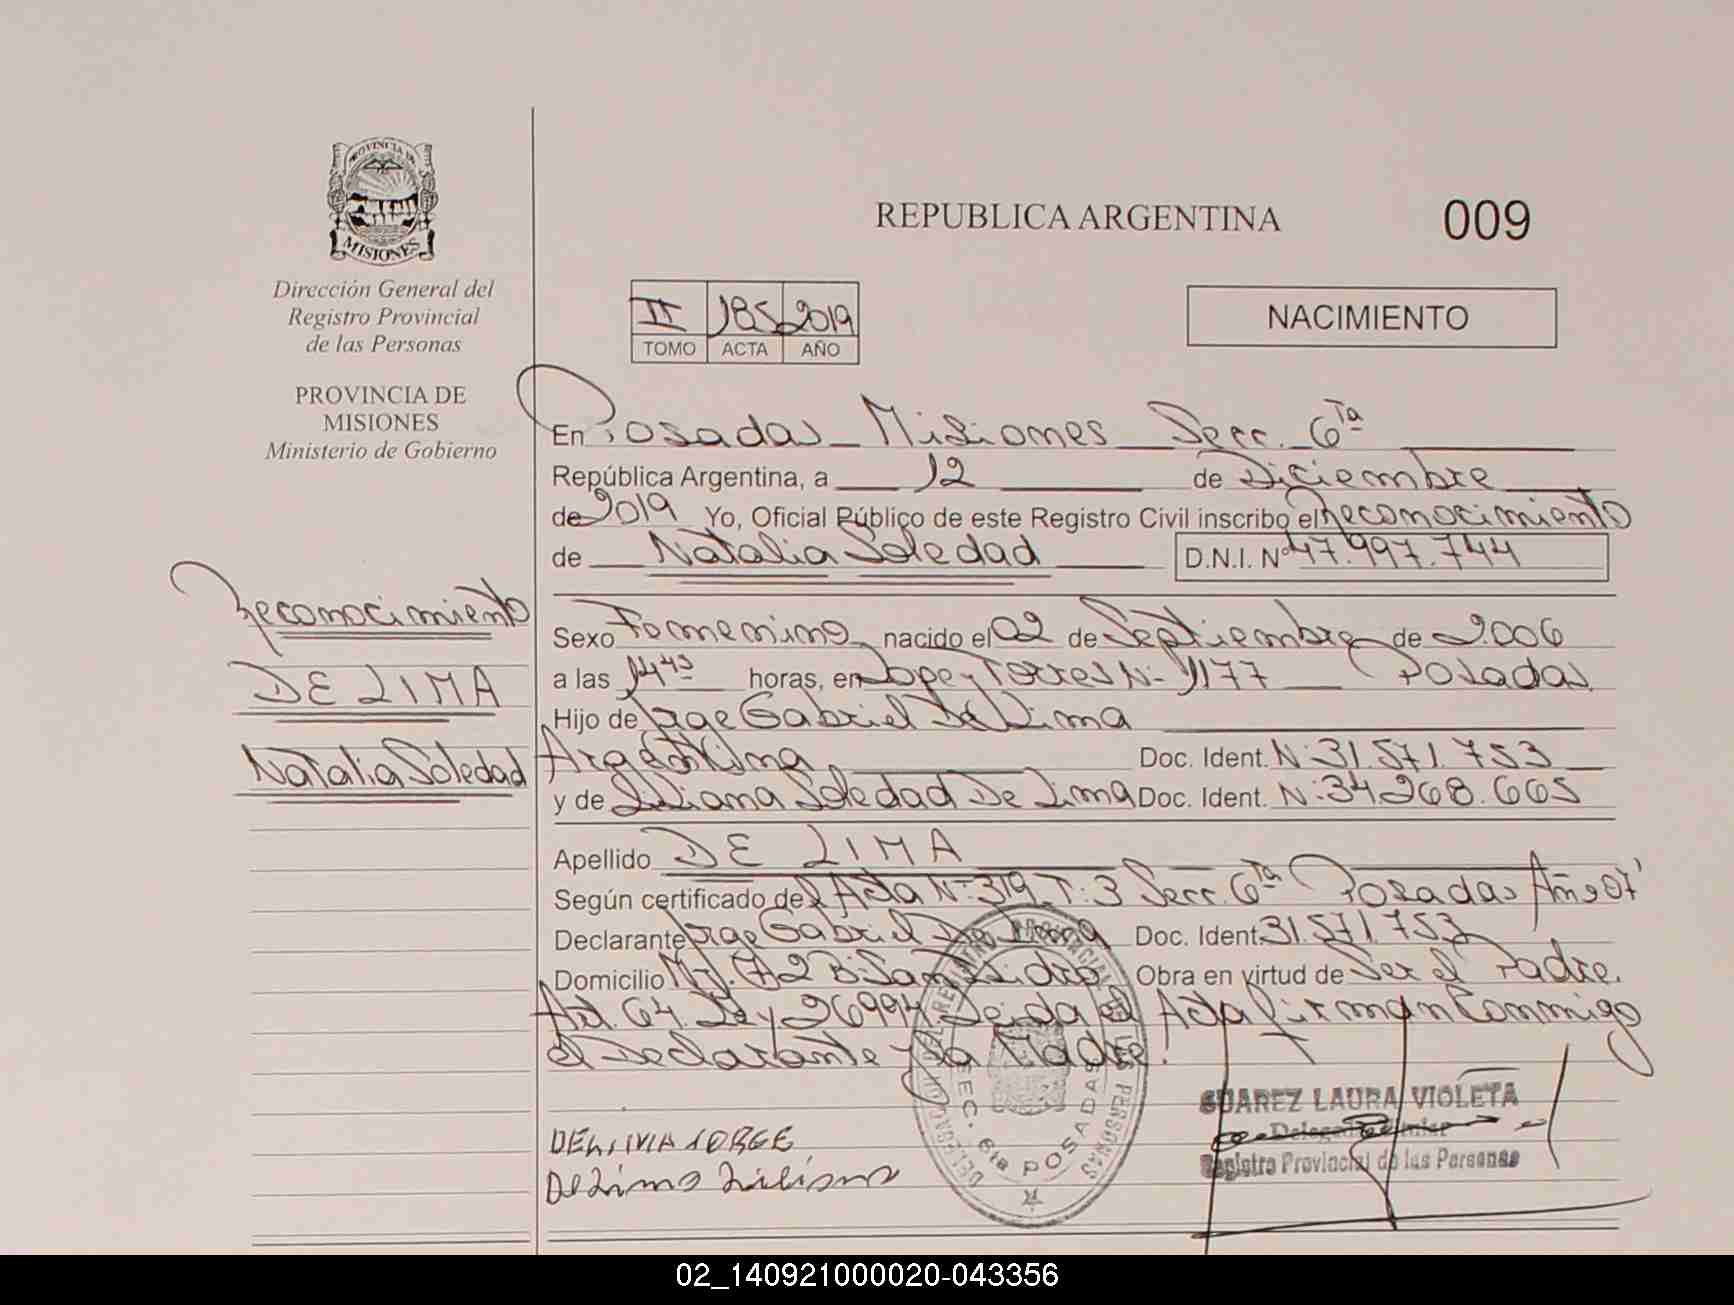 PROVINCIA DE
MISIONES
Dirección General del
Registro Provincial
de las Personas
PROVINCIA DE
MISIONES
Ministerio de Gobierno
Reconocimiento
DE LIMA
Natalia Soledad
REPUBLICA ARGENTINA
009
II 185 2019
TOMO ACTA AÑO
NACIMIENTO
En Posadas Misiones Secc. 6ta
República Argentina, a 12 de Diciembre
de 2019 Yo, Oficial Público de este Registro Civil inscribo el Reconocimiento
de Natalia Soledad D.N.I. Nº 47.997.744
Sexo Femenino nacido el 02 de Septiembre de 2006
a las 14 45 horas, en Lopez y Torres N- 1177 Posadas
Hijo de Jorge Gabriel De Lima
Argentina Doc. Ident. N: 31.571.753
y de Liliana Soledad De Lima Doc. Ident. N: 34.268.665
Apellido DE LIMA
Según certificado de el Acta N: 319 T: 3 Secc. 6ta Posadas Año 07'
Declarante Jorge Gabriel De Lima Doc. Ident. 31.571.753
Domicilio 72 B: San Isidro Obra en virtud de Ser el Padre.
Art. 64 Ley 26994 Leida el Acta firman Conmigo
el Declarante y la Madre.
DELEGACION DEL REGISTRO PROVINCIAL DE LAS PERSONAS
SEC. 6ta POSADAS
SUAREZ LAURA VIOLETA
Registro Provincial de las Personas
DE LIMA JORGE
De Lima Liliana
02_140921000020-043356